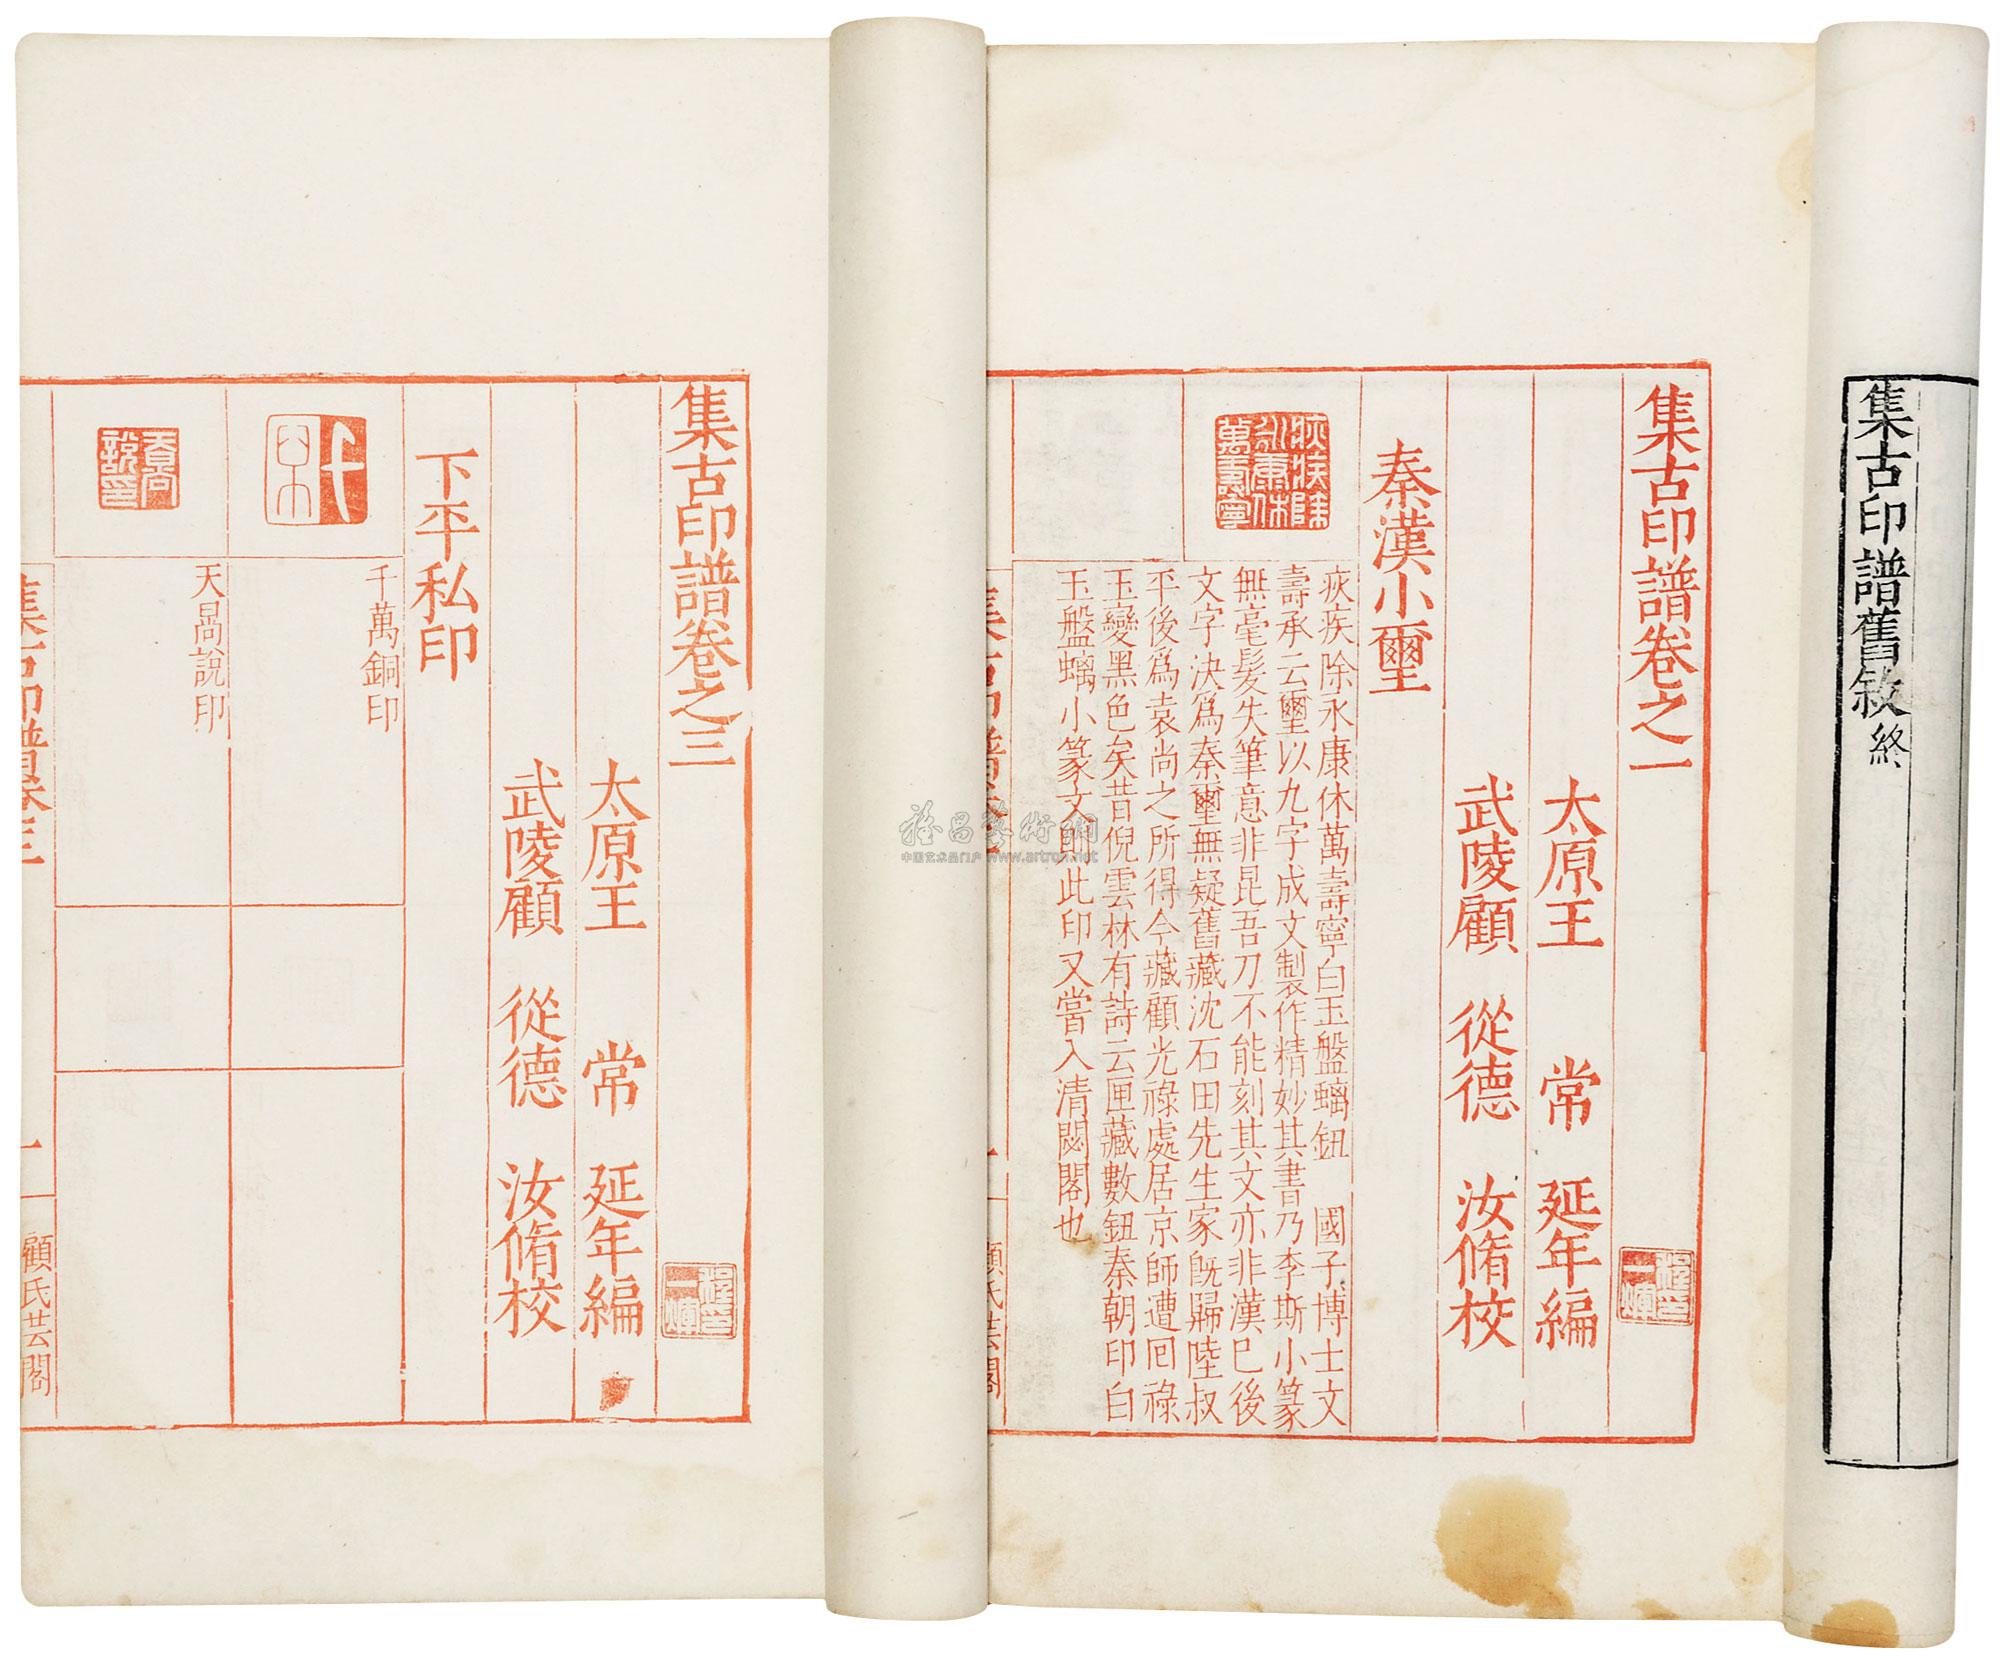 集古印譜舊敘終
集古印譜卷之一
太原王　常　延年編
武陵顧　從德　汝脩校
秦漢小璽
疢疾除永康休萬壽寧白玉盤螭鈕　國子博士文
壽承云璽以九字成文製作精妙其書乃李斯小篆
無毫髮失筆意非昆吾刀不能刻其文亦非漢巳後
文字決爲秦璽無疑舊藏沈石田先生家旣歸陸叔
平後爲袁尚之所得今藏顧光祿處居京師遭回祿
玉變黑色矣昔倪雲林有詩云匣藏數鈕秦朝印白
玉盤螭小篆文卽此印又嘗入清閟閣也
顧氏芸閣
集古印譜卷之三
太原王　常　延年編
武陵顧　從德　汝脩校
下平私印
千萬銅印
天咼說印
集古印譜卷三
一
顧氏芸閣
雅昌藝術網
中国艺术品门户 www.artron.net